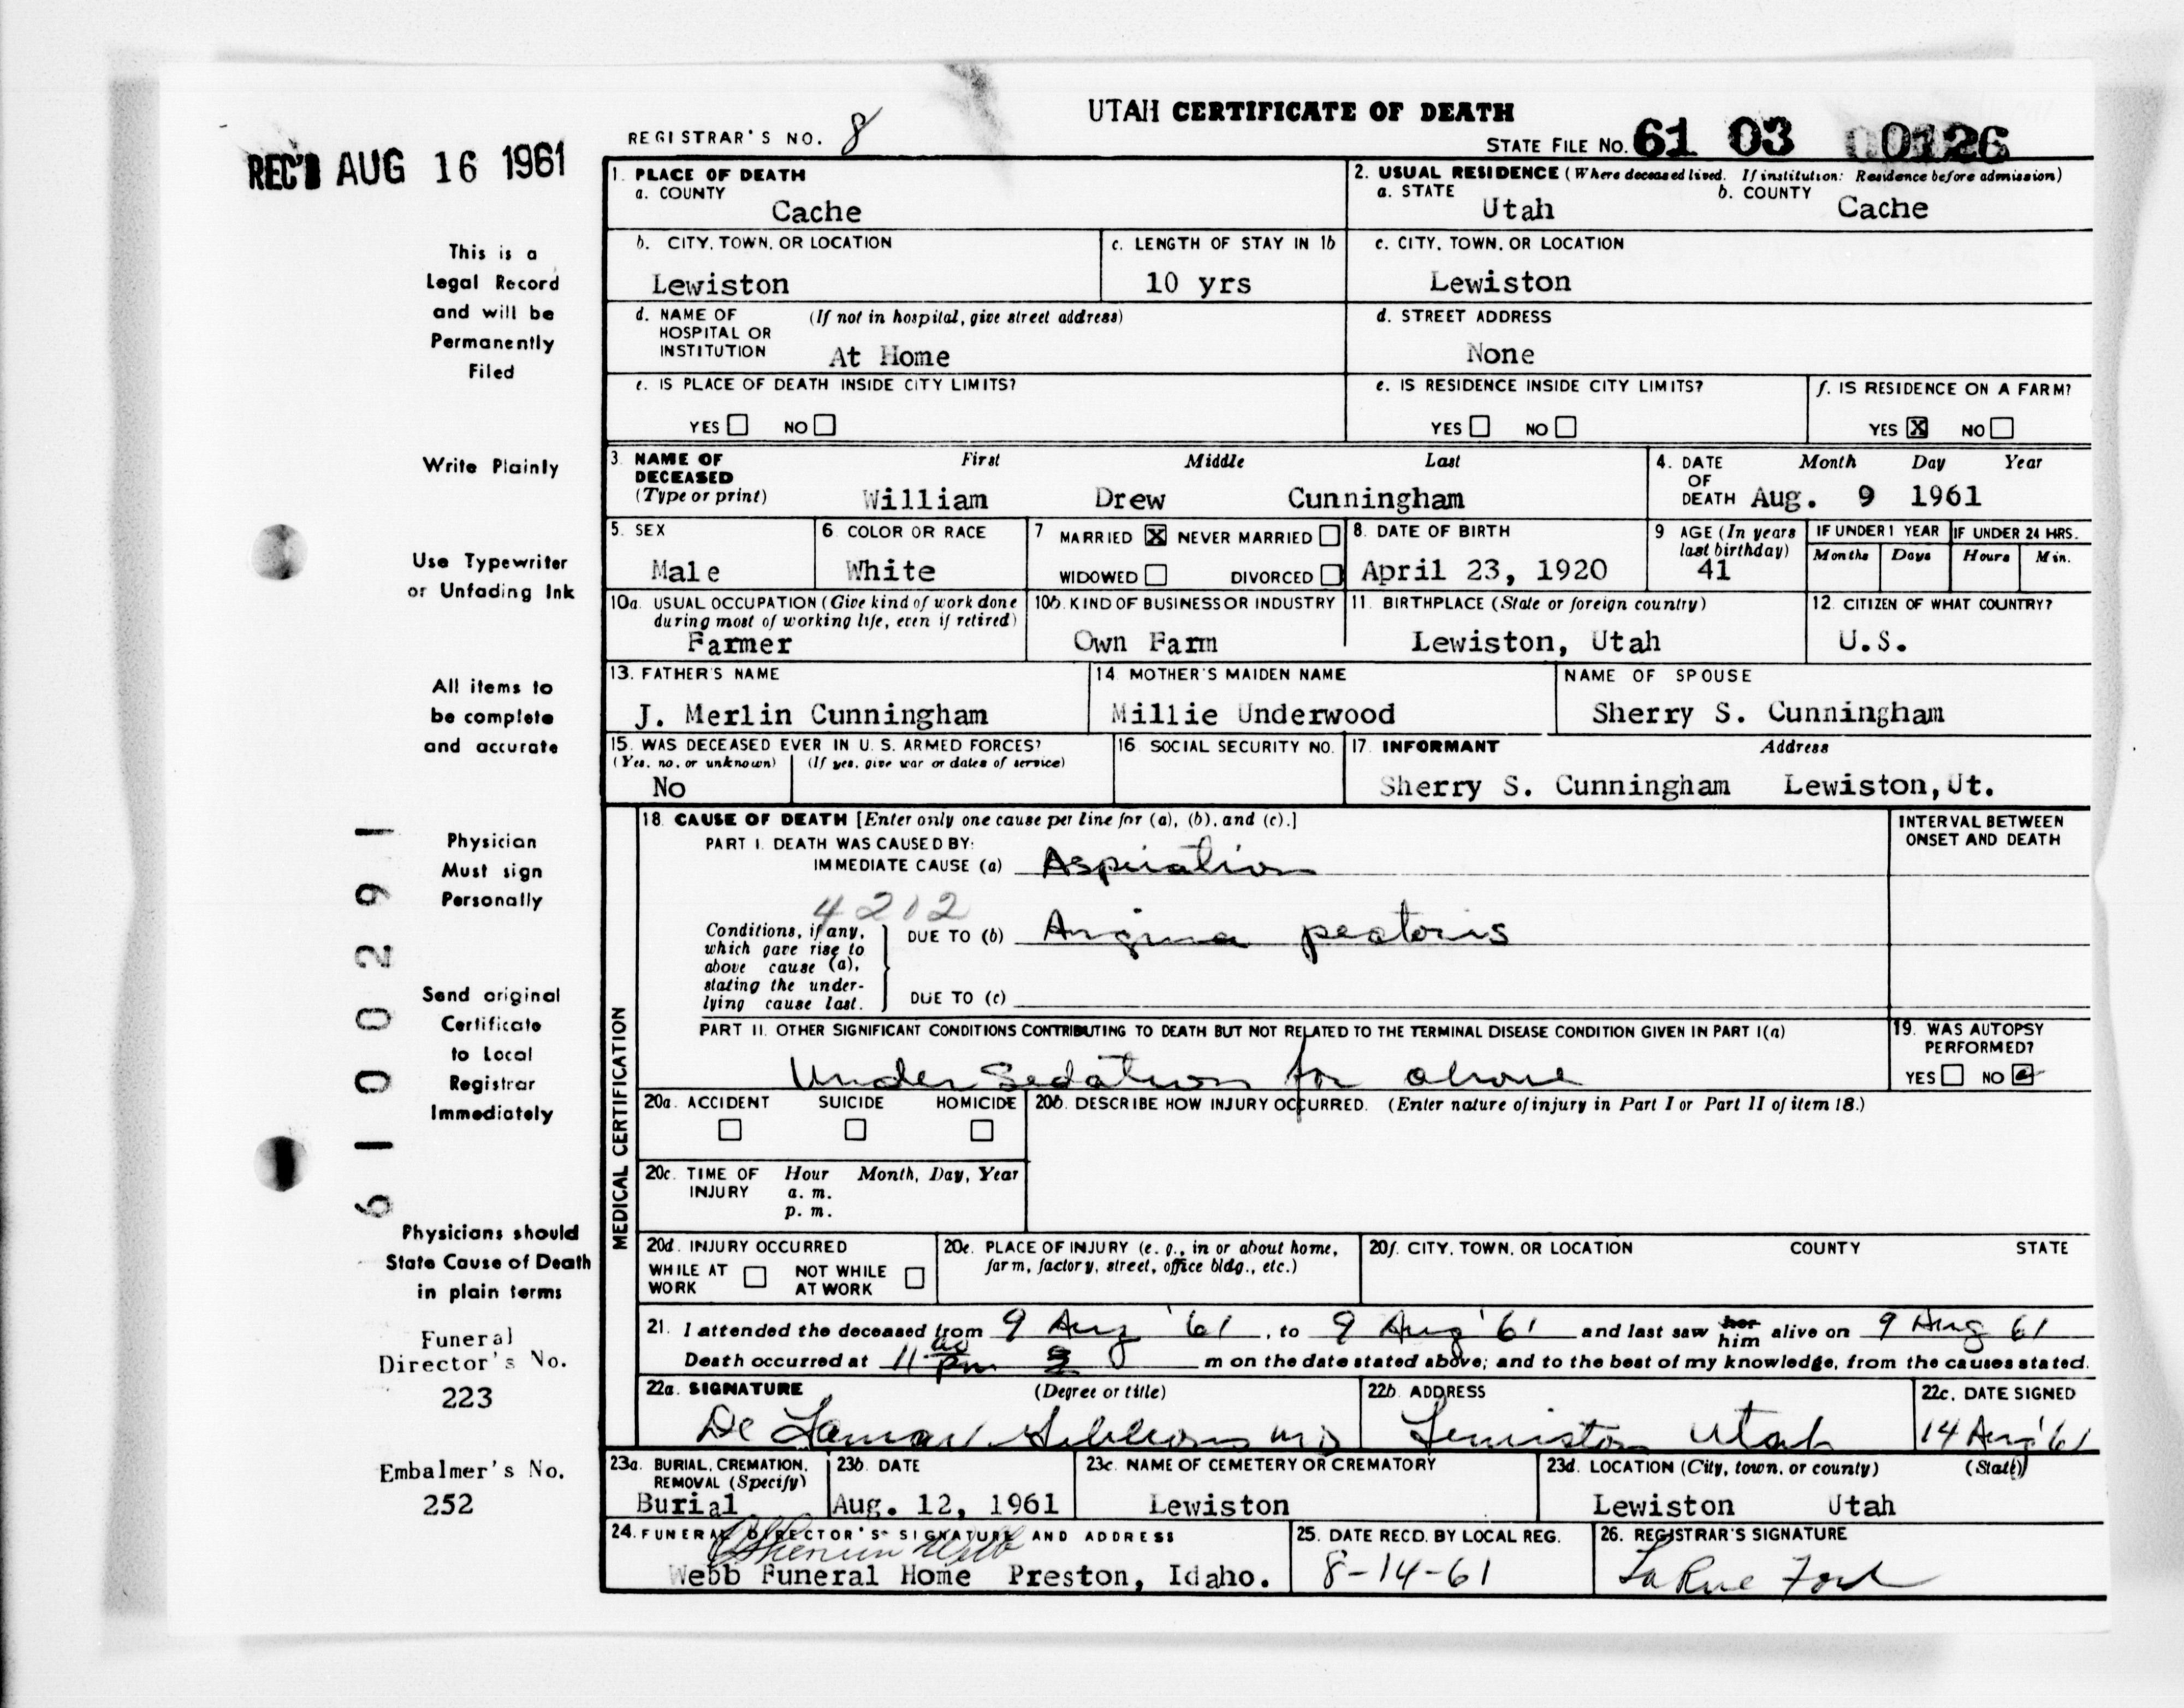 UTAH CERTIFICATE OF DEATH
REC'D AUG 16 1961
REGISTRAR'S NO. 8
STATE FILE NO. 61 03 00126
1. PLACE OF DEATH
a. COUNTY
Cache
2. USUAL RESIDENCE (Where deceased lived. If institution: Residence before admission)
a. STATE
Utah
b. COUNTY
Cache
b. CITY, TOWN, OR LOCATION
Lewiston
c. LENGTH OF STAY IN 1b
10 yrs
c. CITY, TOWN, OR LOCATION
Lewiston
d. NAME OF HOSPITAL OR INSTITUTION
(If not in hospital, give street address)
At Home
d. STREET ADDRESS
None
e. IS PLACE OF DEATH INSIDE CITY LIMITS?
YES NO
e. IS RESIDENCE INSIDE CITY LIMITS?
YES NO
f. IS RESIDENCE ON A FARM?
YES X NO
3. NAME OF DECEASED
(Type or print)
First Middle Last
William Drew Cunningham
4. DATE OF DEATH
Month Day Year
Aug. 9 1961
5. SEX
Male
6. COLOR OR RACE
White
7 MARRIED X NEVER MARRIED
WIDOWED DIVORCED
8. DATE OF BIRTH
April 23, 1920
9 AGE (In years last birthday)
41
IF UNDER 1 YEAR
Months Days
IF UNDER 24 HRS.
Hours Min.
10a. USUAL OCCUPATION (Give kind of work done during most of working life, even if retired)
Farmer
10b. KIND OF BUSINESS OR INDUSTRY
Own Farm
11. BIRTHPLACE (State or foreign country)
Lewiston, Utah
12. CITIZEN OF WHAT COUNTRY?
U.S.
13. FATHER'S NAME
J. Merlin Cunningham
14. MOTHER'S MAIDEN NAME
Millie Underwood
NAME OF SPOUSE
Sherry S. Cunningham
15. WAS DECEASED EVER IN U. S. ARMED FORCES?
(Yes, no, or unknown) (If yes, give war or dates of service)
No
16. SOCIAL SECURITY NO.
17. INFORMANT Address
Sherry S. Cunningham Lewiston, Ut.
MEDICAL CERTIFICATION
18. CAUSE OF DEATH [Enter only one cause per line for (a), (b), and (c).]
PART I. DEATH WAS CAUSED BY:
IMMEDIATE CAUSE (a) Aspiration
INTERVAL BETWEEN ONSET AND DEATH
4202
Conditions, if any, which gave rise to above cause (a), stating the underlying cause last.
DUE TO (b) Angina pectoris
DUE TO (c)
PART II. OTHER SIGNIFICANT CONDITIONS CONTRIBUTING TO DEATH BUT NOT RELATED TO THE TERMINAL DISEASE CONDITION GIVEN IN PART I(a)
Under sedation for above
19. WAS AUTOPSY PERFORMED?
YES NO
20a. ACCIDENT SUICIDE HOMICIDE
20b. DESCRIBE HOW INJURY OCCURRED. (Enter nature of injury in Part I or Part II of item 18.)
20c. TIME OF INJURY
Hour Month, Day, Year
a. m.
p. m.
20d. INJURY OCCURRED
WHILE AT WORK NOT WHILE AT WORK
20e. PLACE OF INJURY (e. g., in or about home, farm, factory, street, office bldg., etc.)
20f. CITY, TOWN, OR LOCATION COUNTY STATE
21. I attended the deceased from 9 Aug '61, to 9 Aug '61 and last saw her him alive on 9 Aug 61
Death occurred at 11 00 pm m on the date stated above; and to the best of my knowledge, from the causes stated.
22a. SIGNATURE (Degree or title)
De Lamar Gibbons MD
22b. ADDRESS
Lewiston Utah
22c. DATE SIGNED
14 Aug '61
23a. BURIAL, CREMATION, REMOVAL (Specify)
Burial
23b. DATE
Aug. 12, 1961
23c. NAME OF CEMETERY OR CREMATORY
Lewiston
23d. LOCATION (City, town, or county) (State)
Lewiston Utah
24. FUNERAL DIRECTOR'S SIGNATURE AND ADDRESS
Webb
Webb Funeral Home Preston, Idaho.
25. DATE RECD. BY LOCAL REG.
8-14-61
26. REGISTRAR'S SIGNATURE
LaRue Ford
This is a
Legal Record
and will be
Permanently
Filed
Write Plainly
Use Typewriter
or Unfading Ink
All items to
be complete
and accurate
Physician
Must sign
Personally
Send original
Certificate
to Local
Registrar
Immediately
Physicians should
State Cause of Death
in plain terms
Funeral
Director's No.
223
Embalmer's No.
252
61 00291